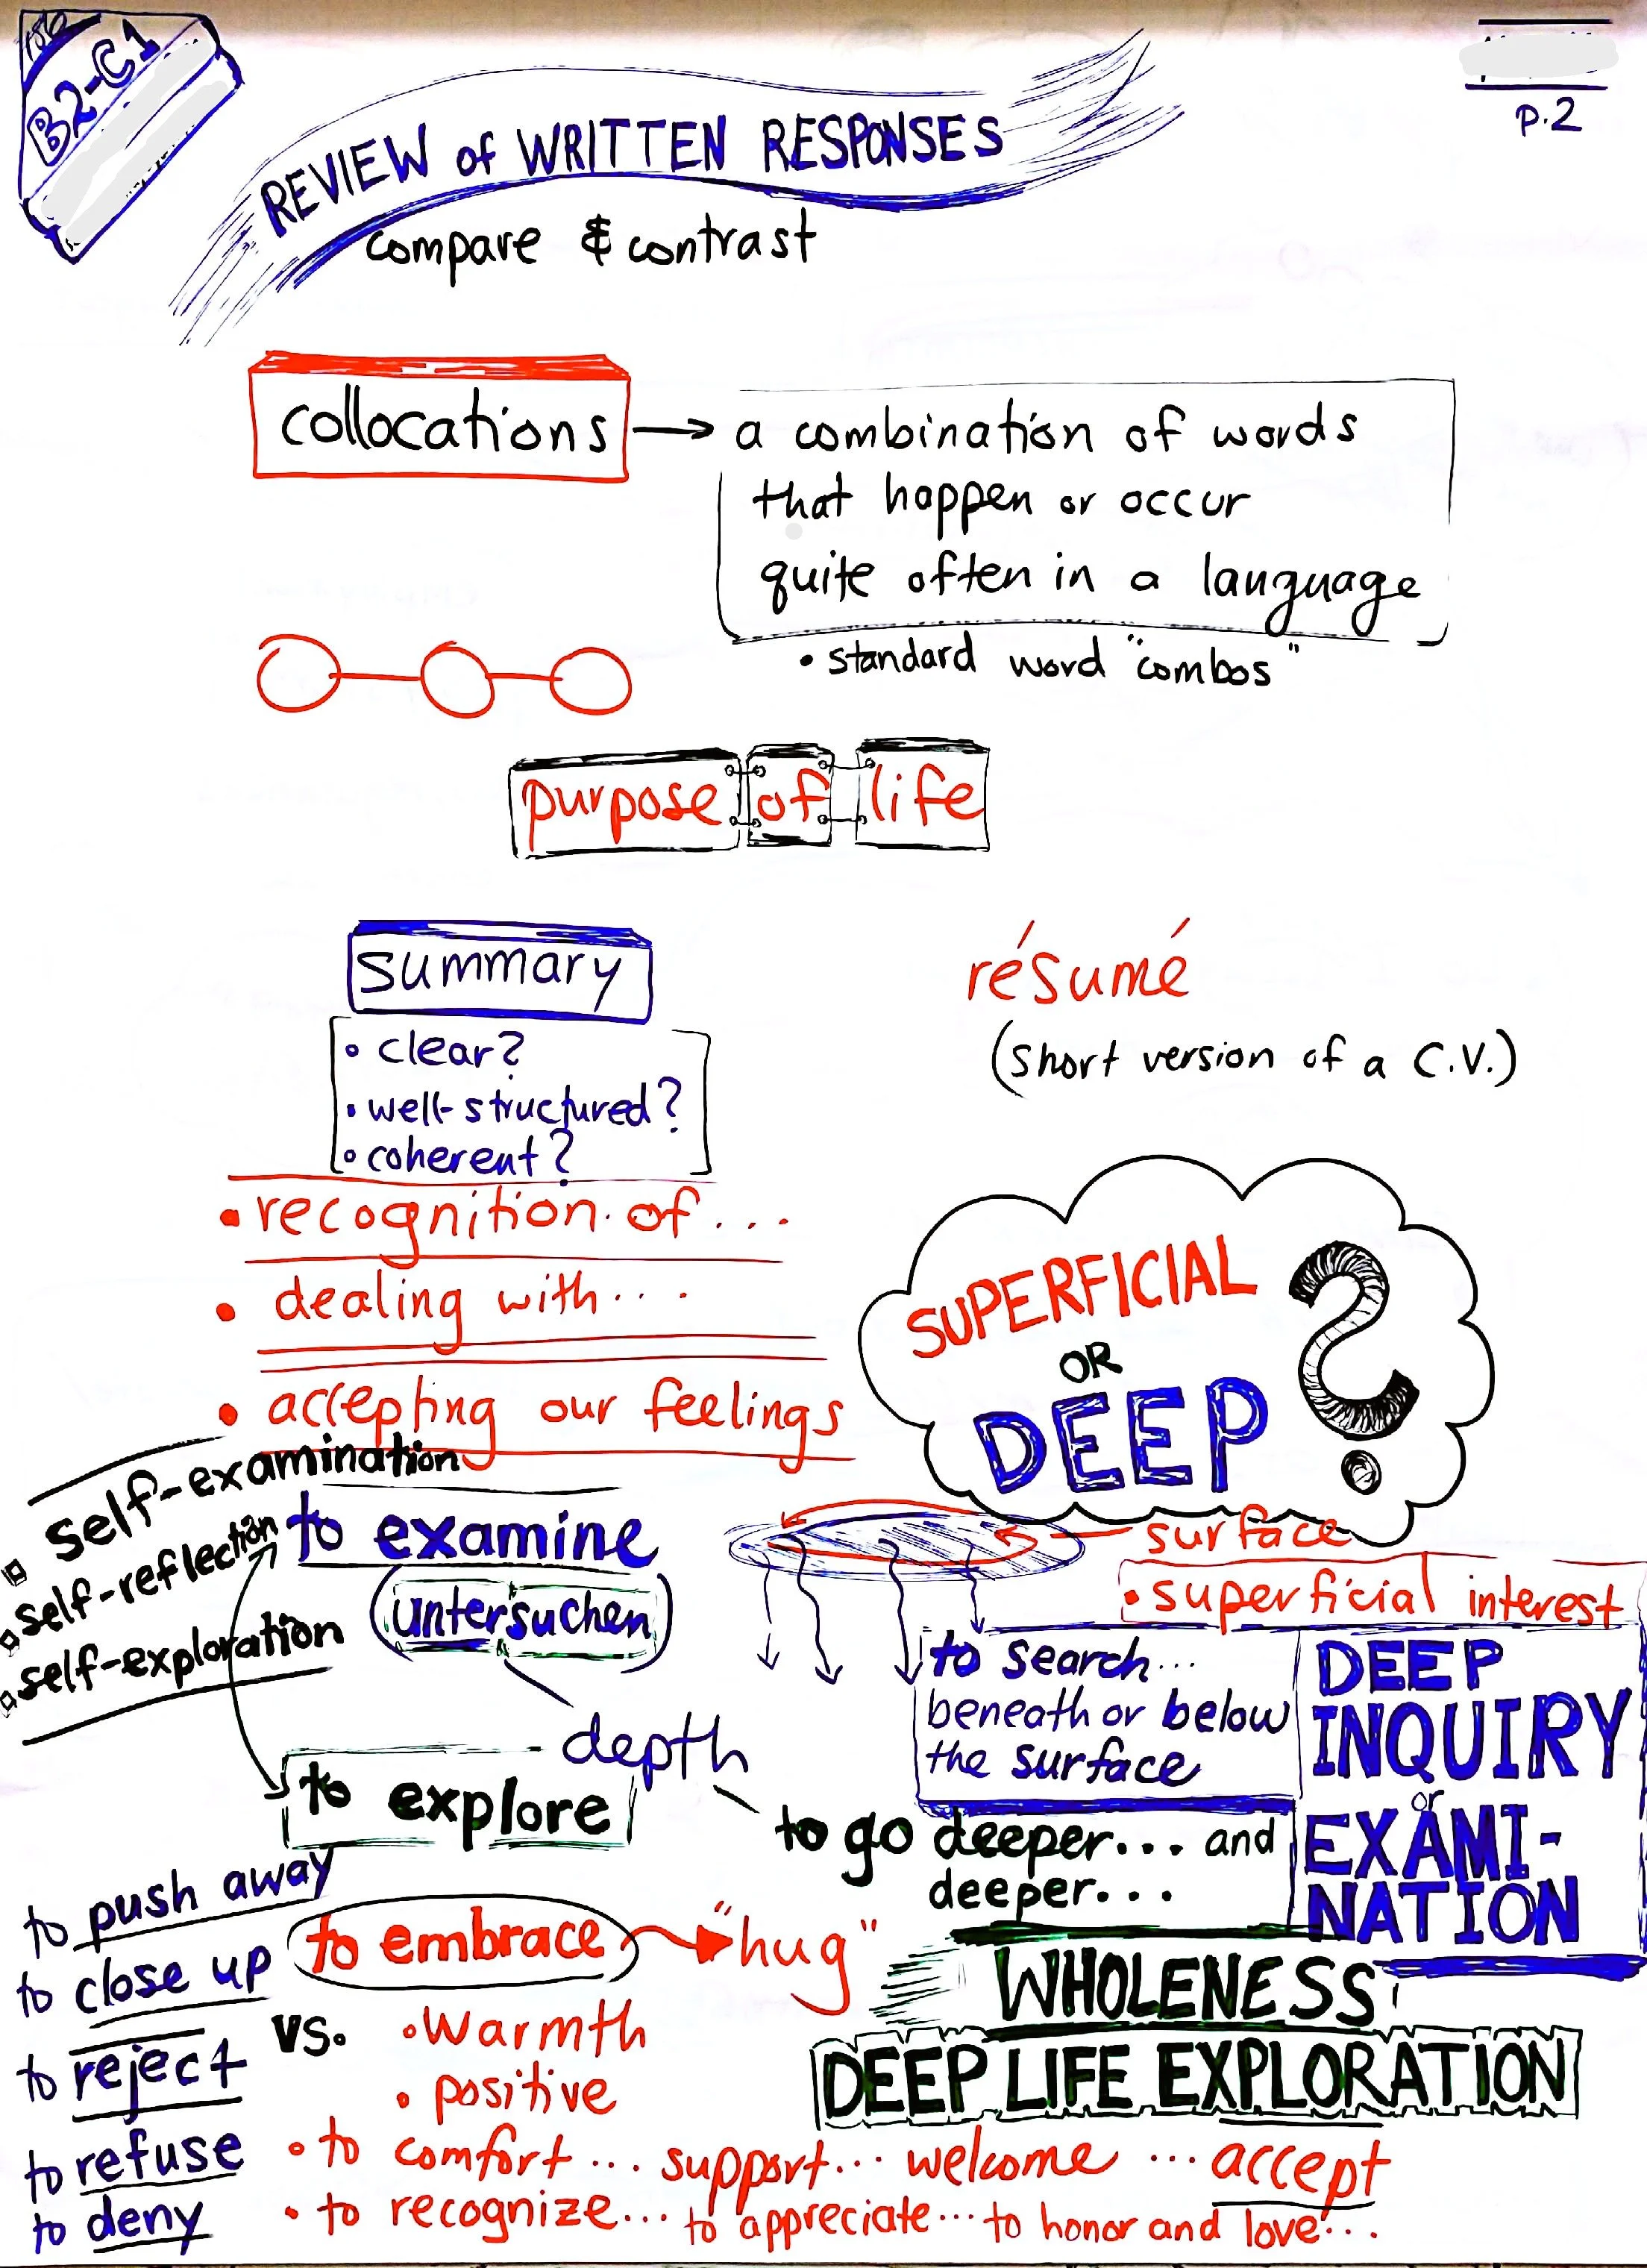 B2-C1
p.2
REVIEW of WRITTEN RESPONSES
compare & contrast
collocations
a combination of words
that happen or occur
quite often in a language
• standard word "combos"
purpose of life
summary
• clear?
• well-structured?
• coherent?
résumé
(short version of a C.V.)
• recognition of...
• dealing with....
• accepting our feelings
SUPERFICIAL
OR
DEEP
?
self-examination
self-reflection
self-exploration
to examine
(untersuchen)
depth
to explore
surface
• superficial interest
to search...
beneath or below
the surface
DEEP
INQUIRY
or
EXAMI-
NATION
to go deeper... and
deeper...
WHOLENESS
DEEP LIFE EXPLORATION
to push away
to close up
to reject
to refuse
to deny
vs.
to embrace
"hug"
• warmth
• positive
• to comfort... support... welcome ... accept
• to recognize... to appreciate... to honor and love...